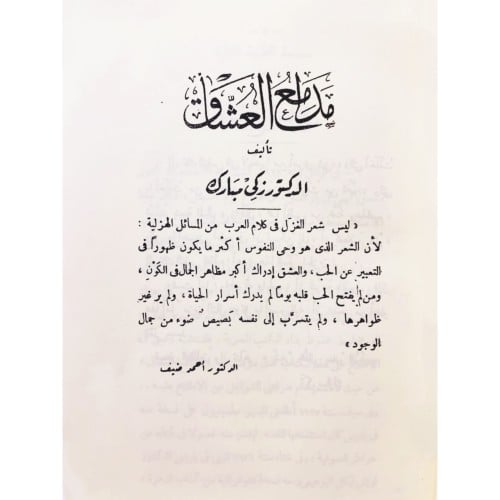 مدامع العشاق
تأليف
الدكتور زكي مبارك
« ليس شعر الغزل فى كلام العرب من المسائل الهزلية :
لأن الشعر الذى هو وحى النفوس أكبر ما يكون ظهورا فى
التعبير عن الحب، والعشق إدراك أكبر مظاهر الجمال فى الكون ،
ومن لم يفتح الحب قلبه يوما لم يدرك أسرار الحياة ، ولم ير غير
ظواهرها ، ولم يتسرب إلى نفسه بصيص ضوء من جمال
الوجود »
الدكتور أحمد ضيف